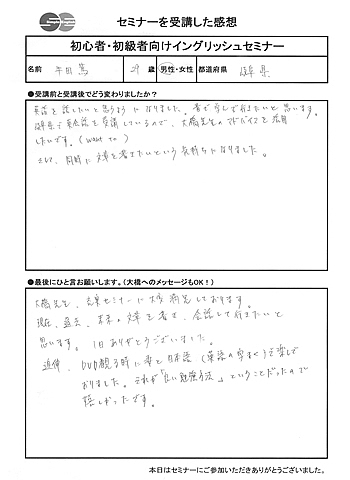 セミナーを受講した感想
初心者・初級者向けイングリッシュセミナー
名前 半田 篤 29 歳 男性・女性 都道府県 岐阜県
●受講前と受講後でどう変わりましたか?
英語を話したいと思うようになりました。書で写して行きたいと思います。
岐阜で英会話を受講しているので、大橋先生のアドバイスを活用
したいです。(want to)
そして、同時に文章を書きたいという気持ちになりました。
●最後にひと言お願いします。(大橋へのメッセージもOK!)
大橋先生、 セミナーに大変満足しております。
現在、過去、未来の文章を書き、会話して行きたいと
思います。1日ありがとうございました。
追伸、DVD観る時に音と日本語(英語の字まく)を楽しんで
おりました。それが「良い勉強方法」ということだったので
嬉しかったです。
本日はセミナーにご参加いただきありがとうございました。